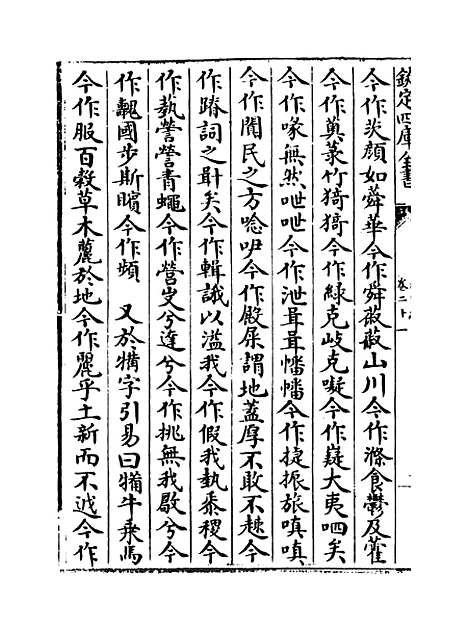 欽定四庫全書 卷二十一
今作茨顔如蕣華今作舜蔋蔋山川今作滌食鬱及藿
今作薁菉竹猗猗今作綠克岐克㘈今作嶷大夷呬矣
今作喙無然呭呭今作泄咠咠幡幡今作捷振旅嗔嗔
今作闐民之方唸㕧今作殿屎謂地蓋厚不敢不趚今
作蹐詞之卙矣今作輯誐以溢我今作假我埶黍稷今
作蓺謍謍青蠅今作營㞰兮達兮今作挑無我𣀳兮今
作魗國步斯矉今作頻 又於犕字引易曰犕牛乘馬
今作服百穀草木䕻於地今作麗乎土新而不今作